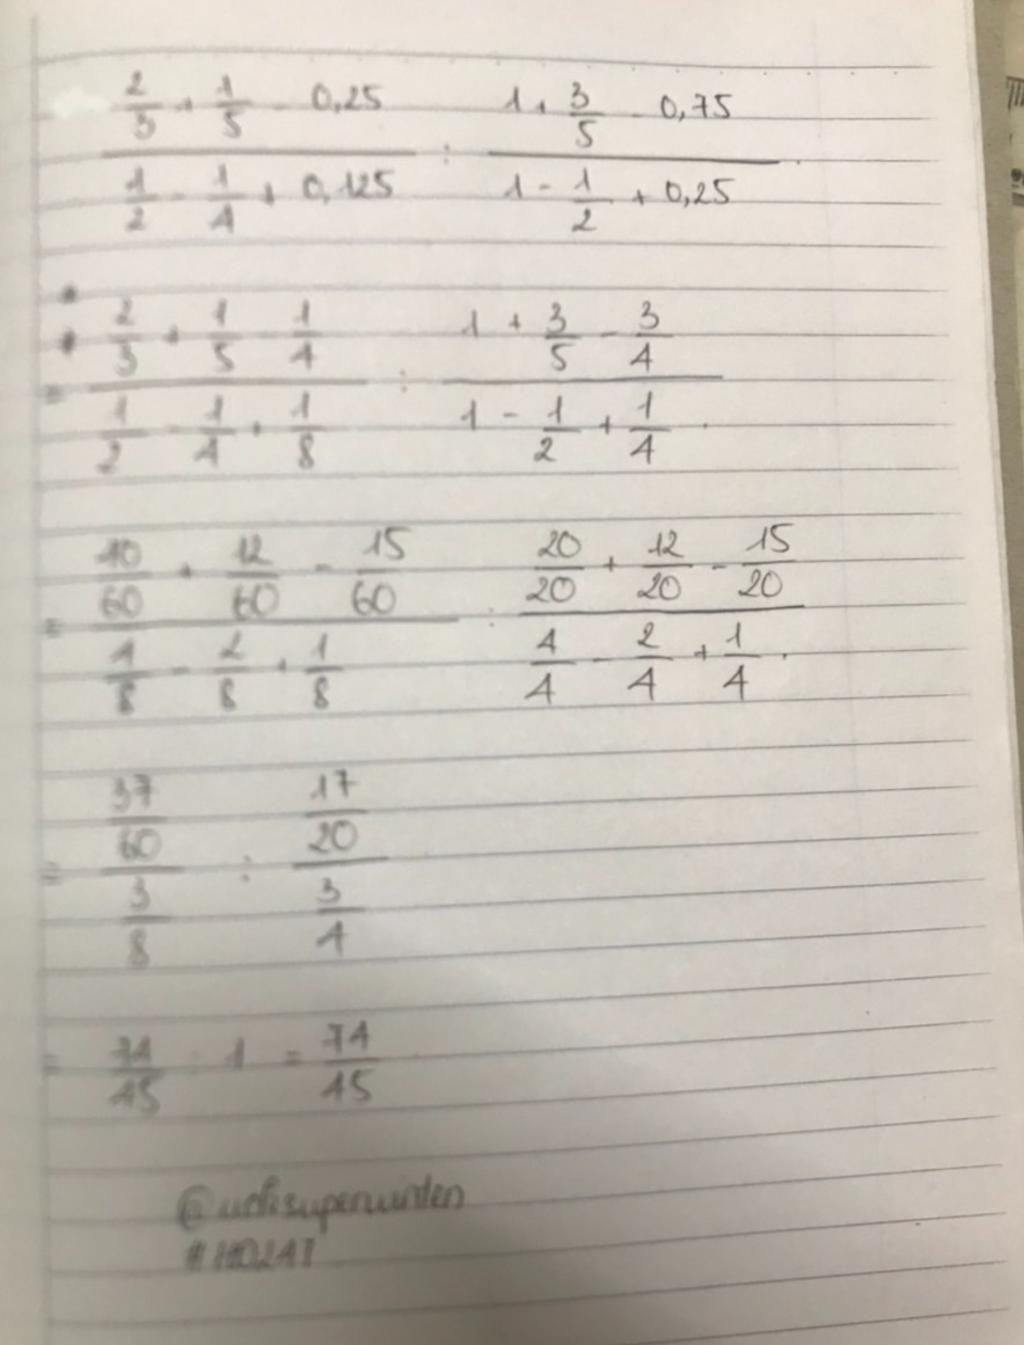 2/3 + 1/5 - 0,25 / 1/2 - 1/4 + 0,125 : 1 + 3/5 - 0,75 / 1 - 1/2 + 0,25
= 2/3 + 1/5 - 1/4 / 1/2 - 1/4 + 1/8 : 1 + 3/5 - 3/4 / 1 - 1/2 + 1/4
= 40/60 + 12/60 - 15/60 / 4/8 - 2/8 + 1/8 : 20/20 + 12/20 - 15/20 / 4/4 - 2/4 + 1/4
= 37/60 / 3/8 : 17/20 / 3/4
= 74/45 : 1 = 74/45